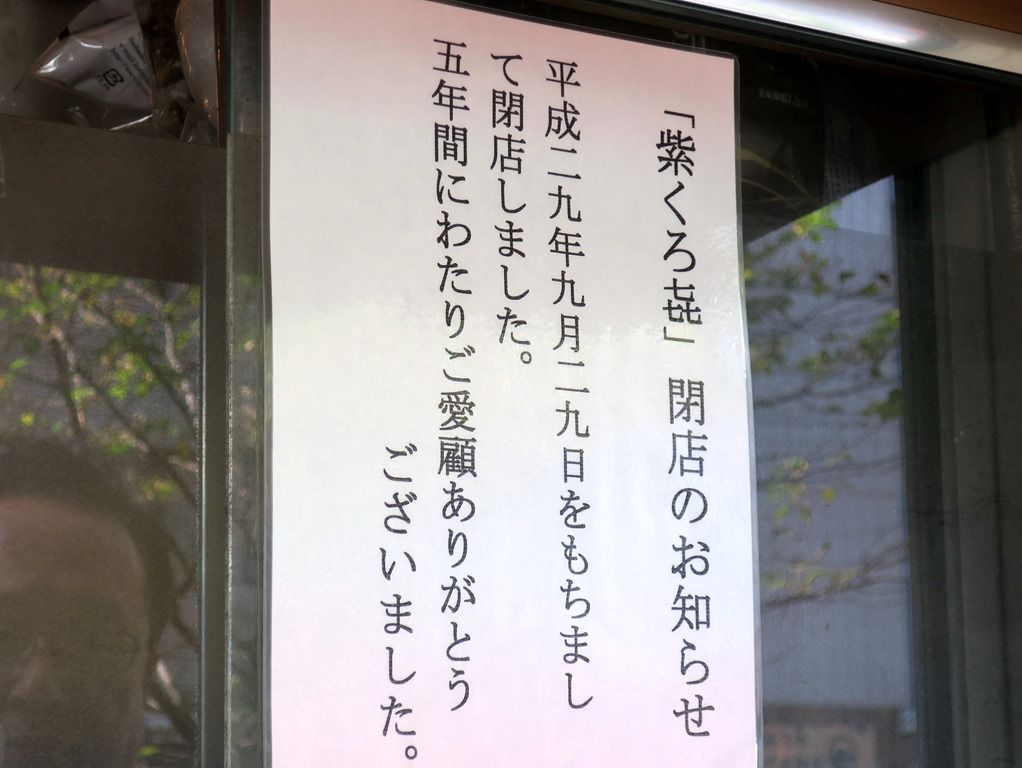 「紫くろ㐂」 閉店のお知らせ
平成二九年九月二九日をもちまし
て閉店しました。
五年間にわたりご愛顧ありがとう
ございました。